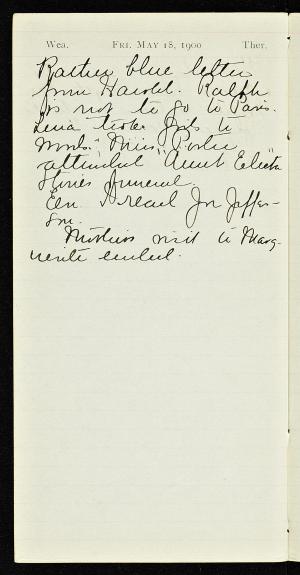 Wea. FRI. MAY 18, 1900 Ther.
Rather blue letter
from Harold. Ralph
is not to go to Paris.
Lena took girls to
Woods. Miss Porter
attended "Aunt Electa"
Stones funeral.
Eve. I read Jos Jeffer-
son.
Mothers visit to Marg-
uerite ended.